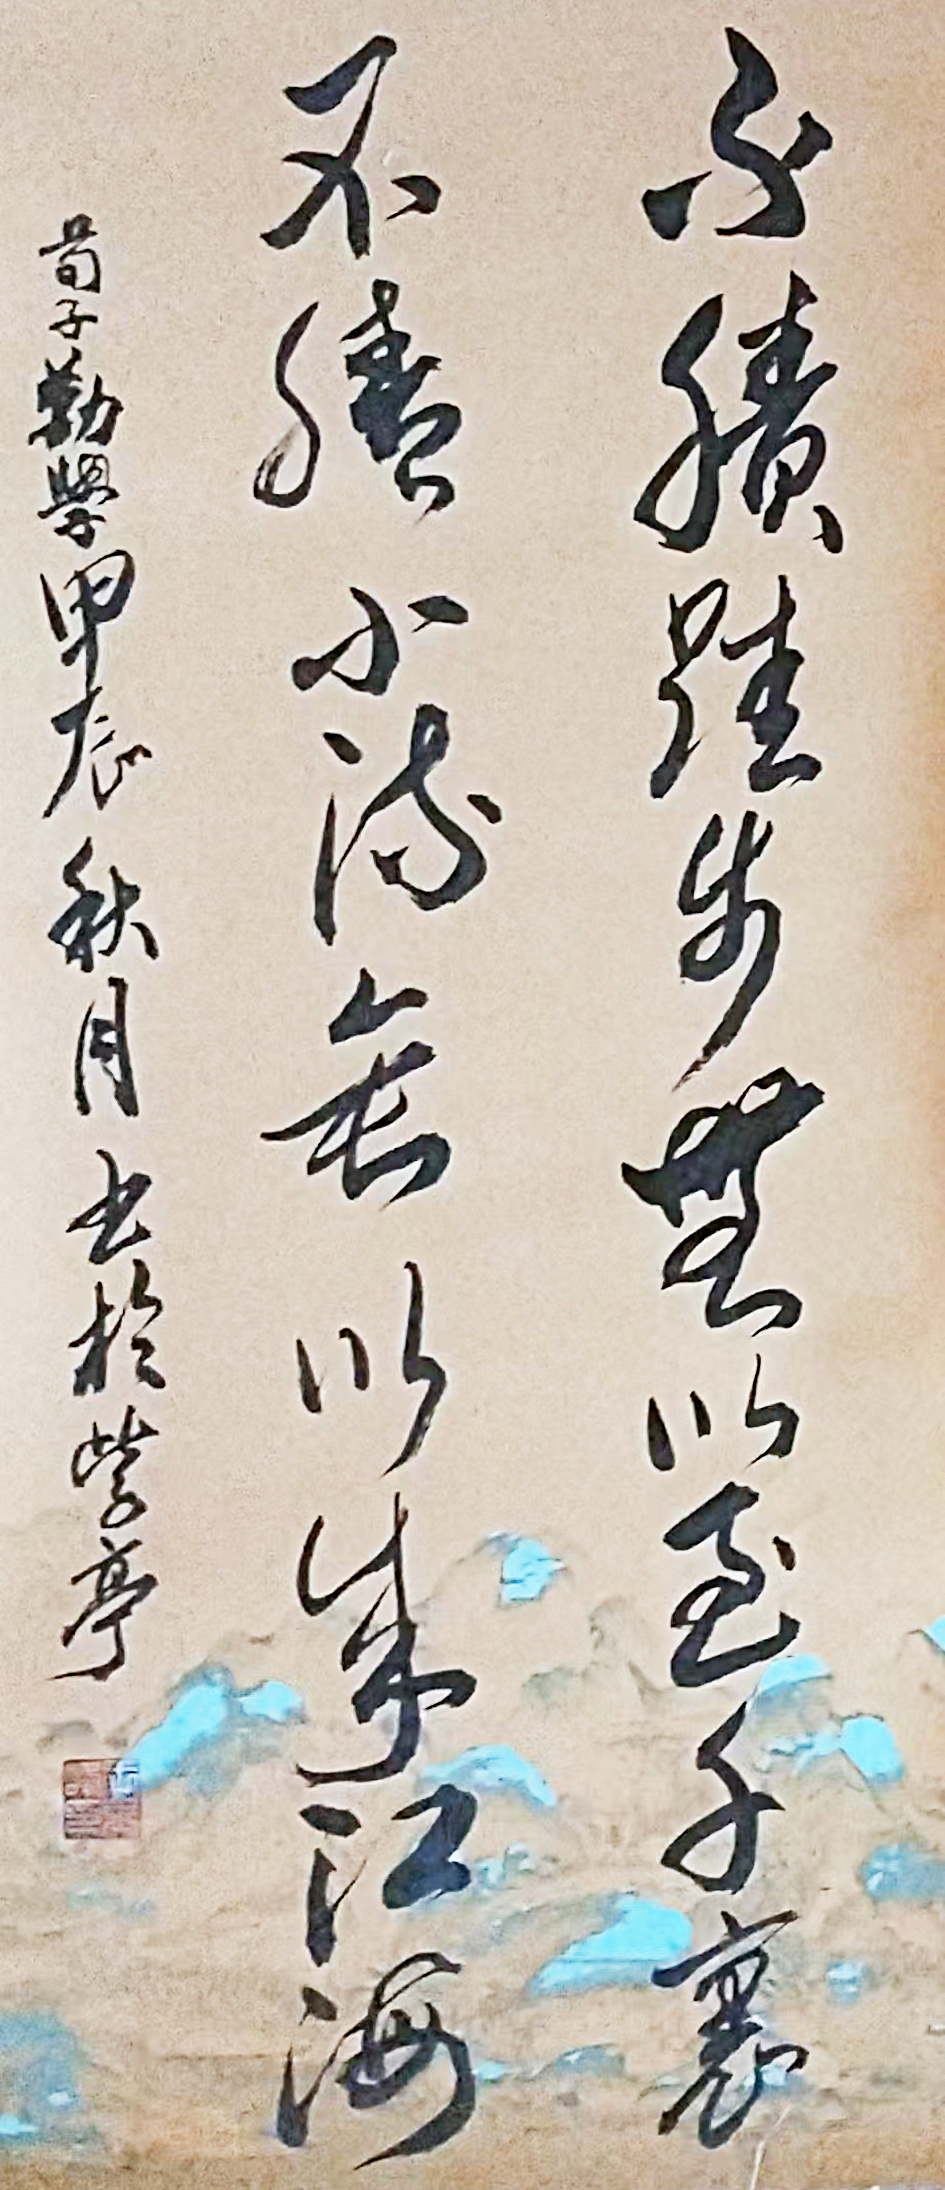 不積跬步無以至千裏
不積小流無以成江海
荀子勸學甲辰秋月書於紫亭